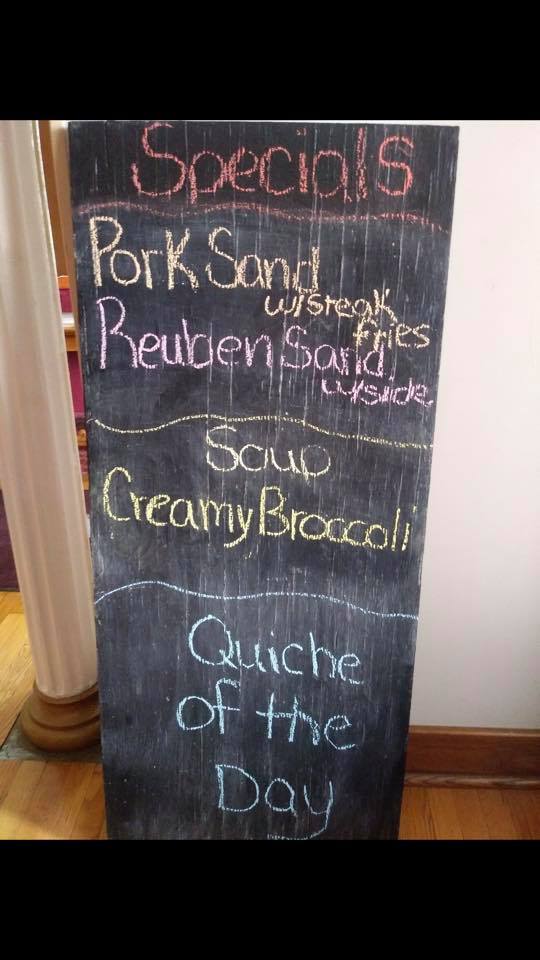 Specials
Pork Sand
w/steak
fries
Reuben Sand
w/side
Soup
Creamy Broccoli
Quiche
of the
Day